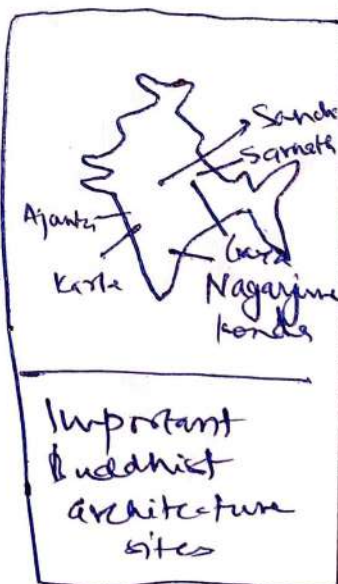 Sanchi
Sarnath
Ajanta
Karle
Gaya
Nagarjuna
konda
Important
Buddhist
architecture
sites